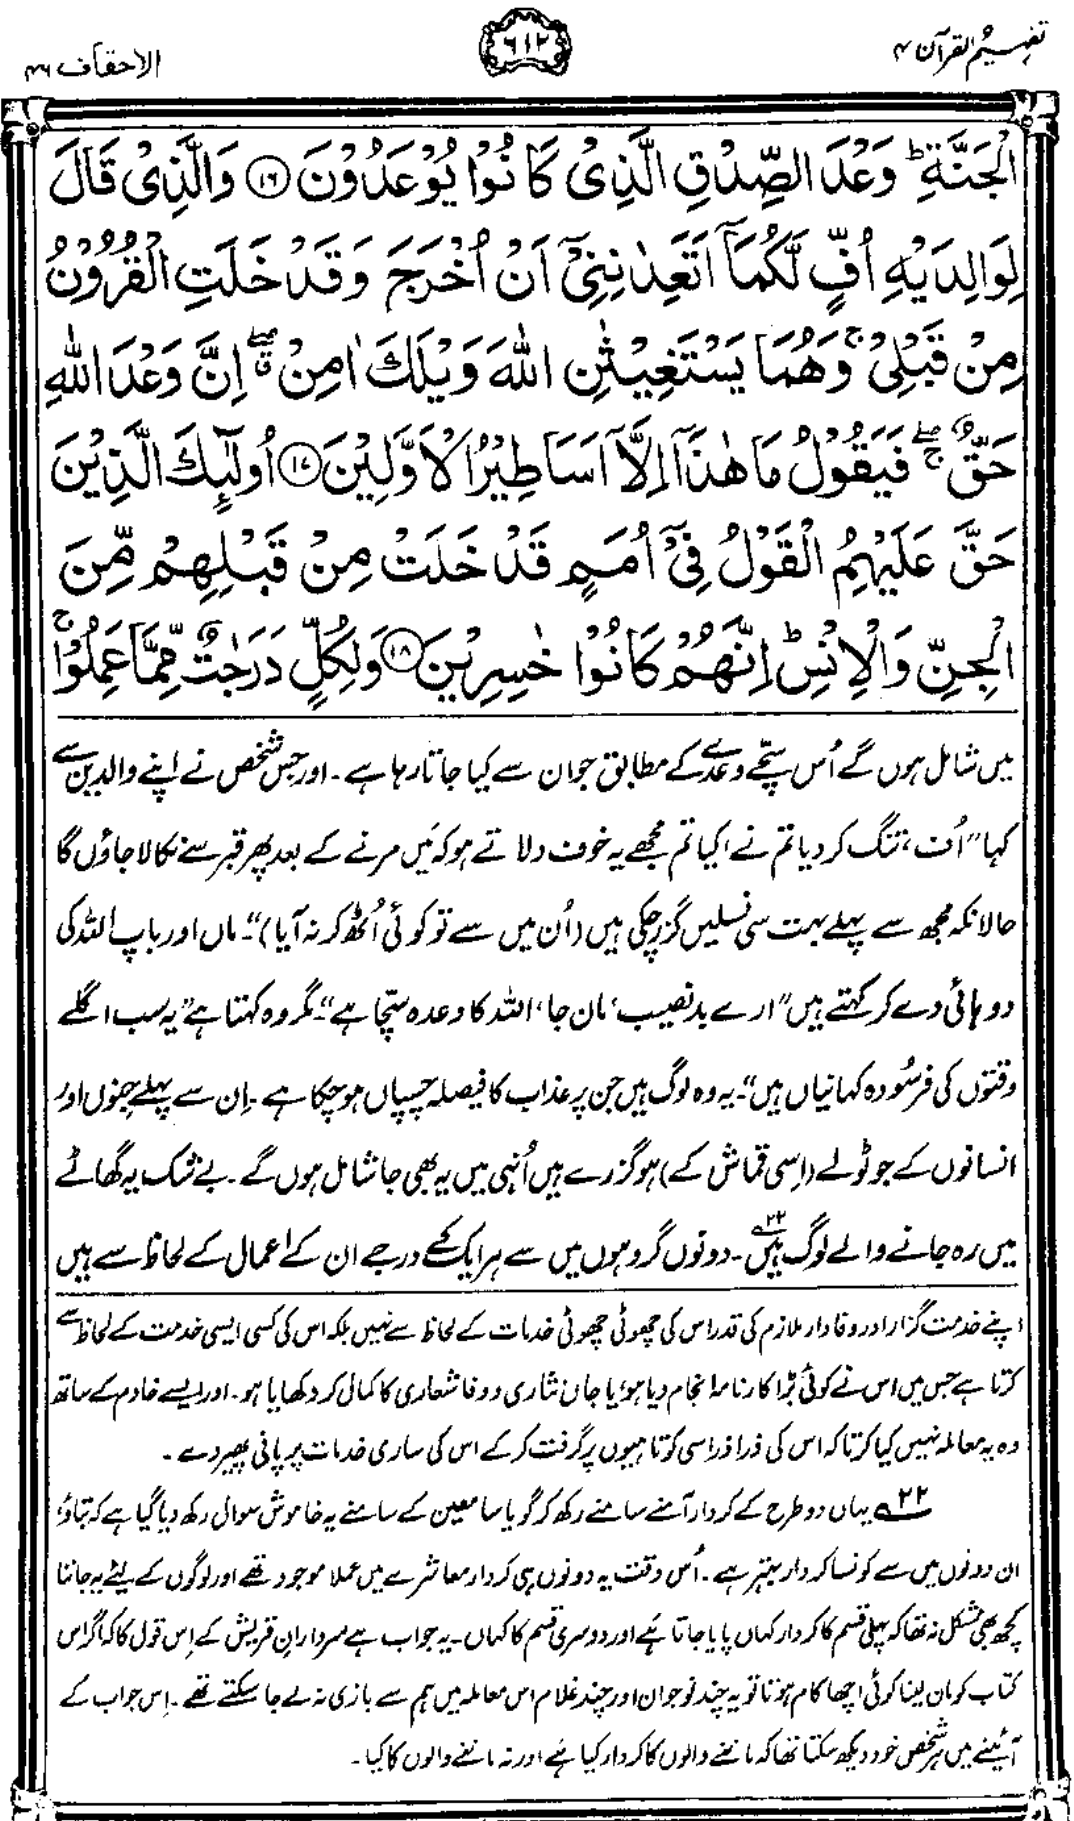 تفہیم القرآن ۴
۶۱۲
الاحقاف ۴۶
الْجَنَّةِ ؕ وَعْدَ الصِّدْقِ الَّذِیْ كَانُوْا یُوْعَدُوْنَ ۱۶ وَالَّذِیْ قَالَ
لِوَالِدَیْهِ اُفٍّ لَّكُمَاۤ اَتَعِدٰنِنِیْۤ اَنْ اُخْرَجَ وَقَدْ خَلَتِ الْقُرُوْنُ
مِنْ قَبْلِیْ ۚ وَهُمَا یَسْتَغِیْثٰنِ اللّٰهَ وَیْلَكَ اٰمِنْ ۖۗ اِنَّ وَعْدَ اللّٰهِ
حَقٌّ ۚۖ فَیَقُوْلُ مَا هٰذَاۤ اِلَّاۤ اَسَاطِیْرُ الْاَوَّلِیْنَ ۱۷ اُولٰٓئِكَ الَّذِیْنَ
حَقَّ عَلَیْهِمُ الْقَوْلُ فِیْۤ اُمَمٍ قَدْ خَلَتْ مِنْ قَبْلِهِمْ مِّنَ
الْجِنِّ وَالْاِنْسِ ؕ اِنَّهُمْ كَانُوْا خٰسِرِیْنَ ۱۸ وَلِكُلٍّ دَرَجٰتٌ مِّمَّا عَمِلُوْا ۚ
میں شامل ہوں گے اُس سچّے وعدے کے مطابق جو ان سے کیا جاتا رہا ہے۔ اور جس شخص نے اپنے والدین سے
کہا ”اُف، تنگ کر دیا تم نے، کیا تم مجھے یہ خوف دلاتے ہو کہ میں مرنے کے بعد پھر قبر سے نکالا جاؤں گا
حالانکہ مجھ سے پہلے بہت سی نسلیں گزر چکی ہیں (اُن میں سے تو کوئی اُٹھ کر نہ آیا)“۔ ماں اور باپ اللہ کی
دوہائی دے کر کہتے ہیں ”ارے بدنصیب، مان جا، اللہ کا وعدہ سچّا ہے“۔ مگر وہ کہتا ہے ”یہ سب اگلے
وقتوں کی فرسُودہ کہانیاں ہیں“۔ یہ وہ لوگ ہیں جن پر عذاب کا فیصلہ چسپاں ہو چکا ہے۔ اِن سے پہلے جنوں اور
انسانوں کے جو ٹولے (اِسی قماش کے) ہو گزرے ہیں اُنہی میں یہ بھی جا شامل ہوں گے۔ بے شک یہ گھاٹے
میں رہ جانے والے لوگ ہیں۲۲۔ دونوں گروہوں میں سے ہر ایک کے درجے ان کے اعمال کے لحاظ سے ہیں
اپنے خدمت گزار اور وفادار ملازم کی قدر اس کی چھوٹی چھوٹی خدمات کے لحاظ سے نہیں بلکہ اس کی کسی ایسی خدمت کے لحاظ سے
کرتا ہے جس میں اس نے کوئی بڑا کارنامہ انجام دیا ہو، یا جاں نثاری و وفاشعاری کا کمال کر دکھایا ہو۔ اور ایسے خادم کے ساتھ
وہ یہ معاملہ نہیں کیا کرتا کہ اس کی ذرا ذرا سی کوتاہیوں پر گرفت کر کے اس کی ساری خدمات پر پانی پھیر دے۔
۲۲؎ یہاں دو طرح کے کردار آمنے سامنے رکھ کر گویا سامعین کے سامنے یہ خاموش سوال رکھ دیا گیا ہے کہ بتاؤ،
ان دونوں میں سے کونسا کردار بہتر ہے۔ اُس وقت یہ دونوں ہی کردار معاشرے میں عملاً موجود تھے اور لوگوں کے لیے یہ جاننا
کچھ بھی مشکل نہ تھا کہ پہلی قسم کا کردار کہاں پایا جاتا ہے اور دوسری قسم کا کہاں۔ یہ جواب ہے سردارانِ قریش کے اِس قول کا کہ اگر اس
کتاب کو مان لینا کوئی اچھا کام ہوتا تو یہ چند نوجوان اور چند غلام اس معاملہ میں ہم سے بازی نہ لے جا سکتے تھے۔ اِس جواب کے
آئینے میں ہر شخص خود دیکھ سکتا تھا کہ ماننے والوں کا کردار کیا ہے اور نہ ماننے والوں کا کیا۔